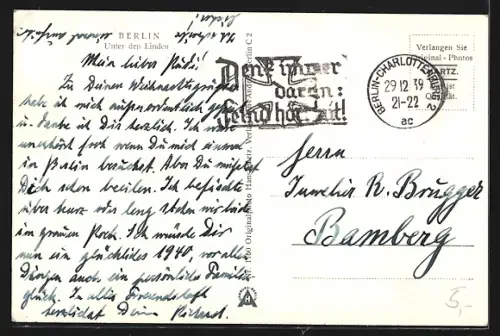 BERLIN
Unter den Linden
Mein lieber
Zu Deinen Weihnachtsgrüßen
habe ich mich außerordentlich gefreut
u. danke ich Dir herzlich. Ich
froh wenn Du mich einmal
in Berlin besuchst. Aber Du müßtest
Dich schon beeilen. Ich befürchte,
über kurz oder lang stehen wir beide
im grauen Rock. Ich wünsche Dir
nun ein glückliches 1940, vor allen
Dingen auch ein persönliches Familien-
glück. In alter Freundschaft
herzlichst Dein Richard.
Denk immer
daran:
Feind hört mit!
BERLIN-CHARLOTTENBURG 2
29.12.39
21-22
ac
Verlangen Sie
Original-Photos
Qualität.
Herrn
Juwelier R. Brugger
Bamberg
5,-